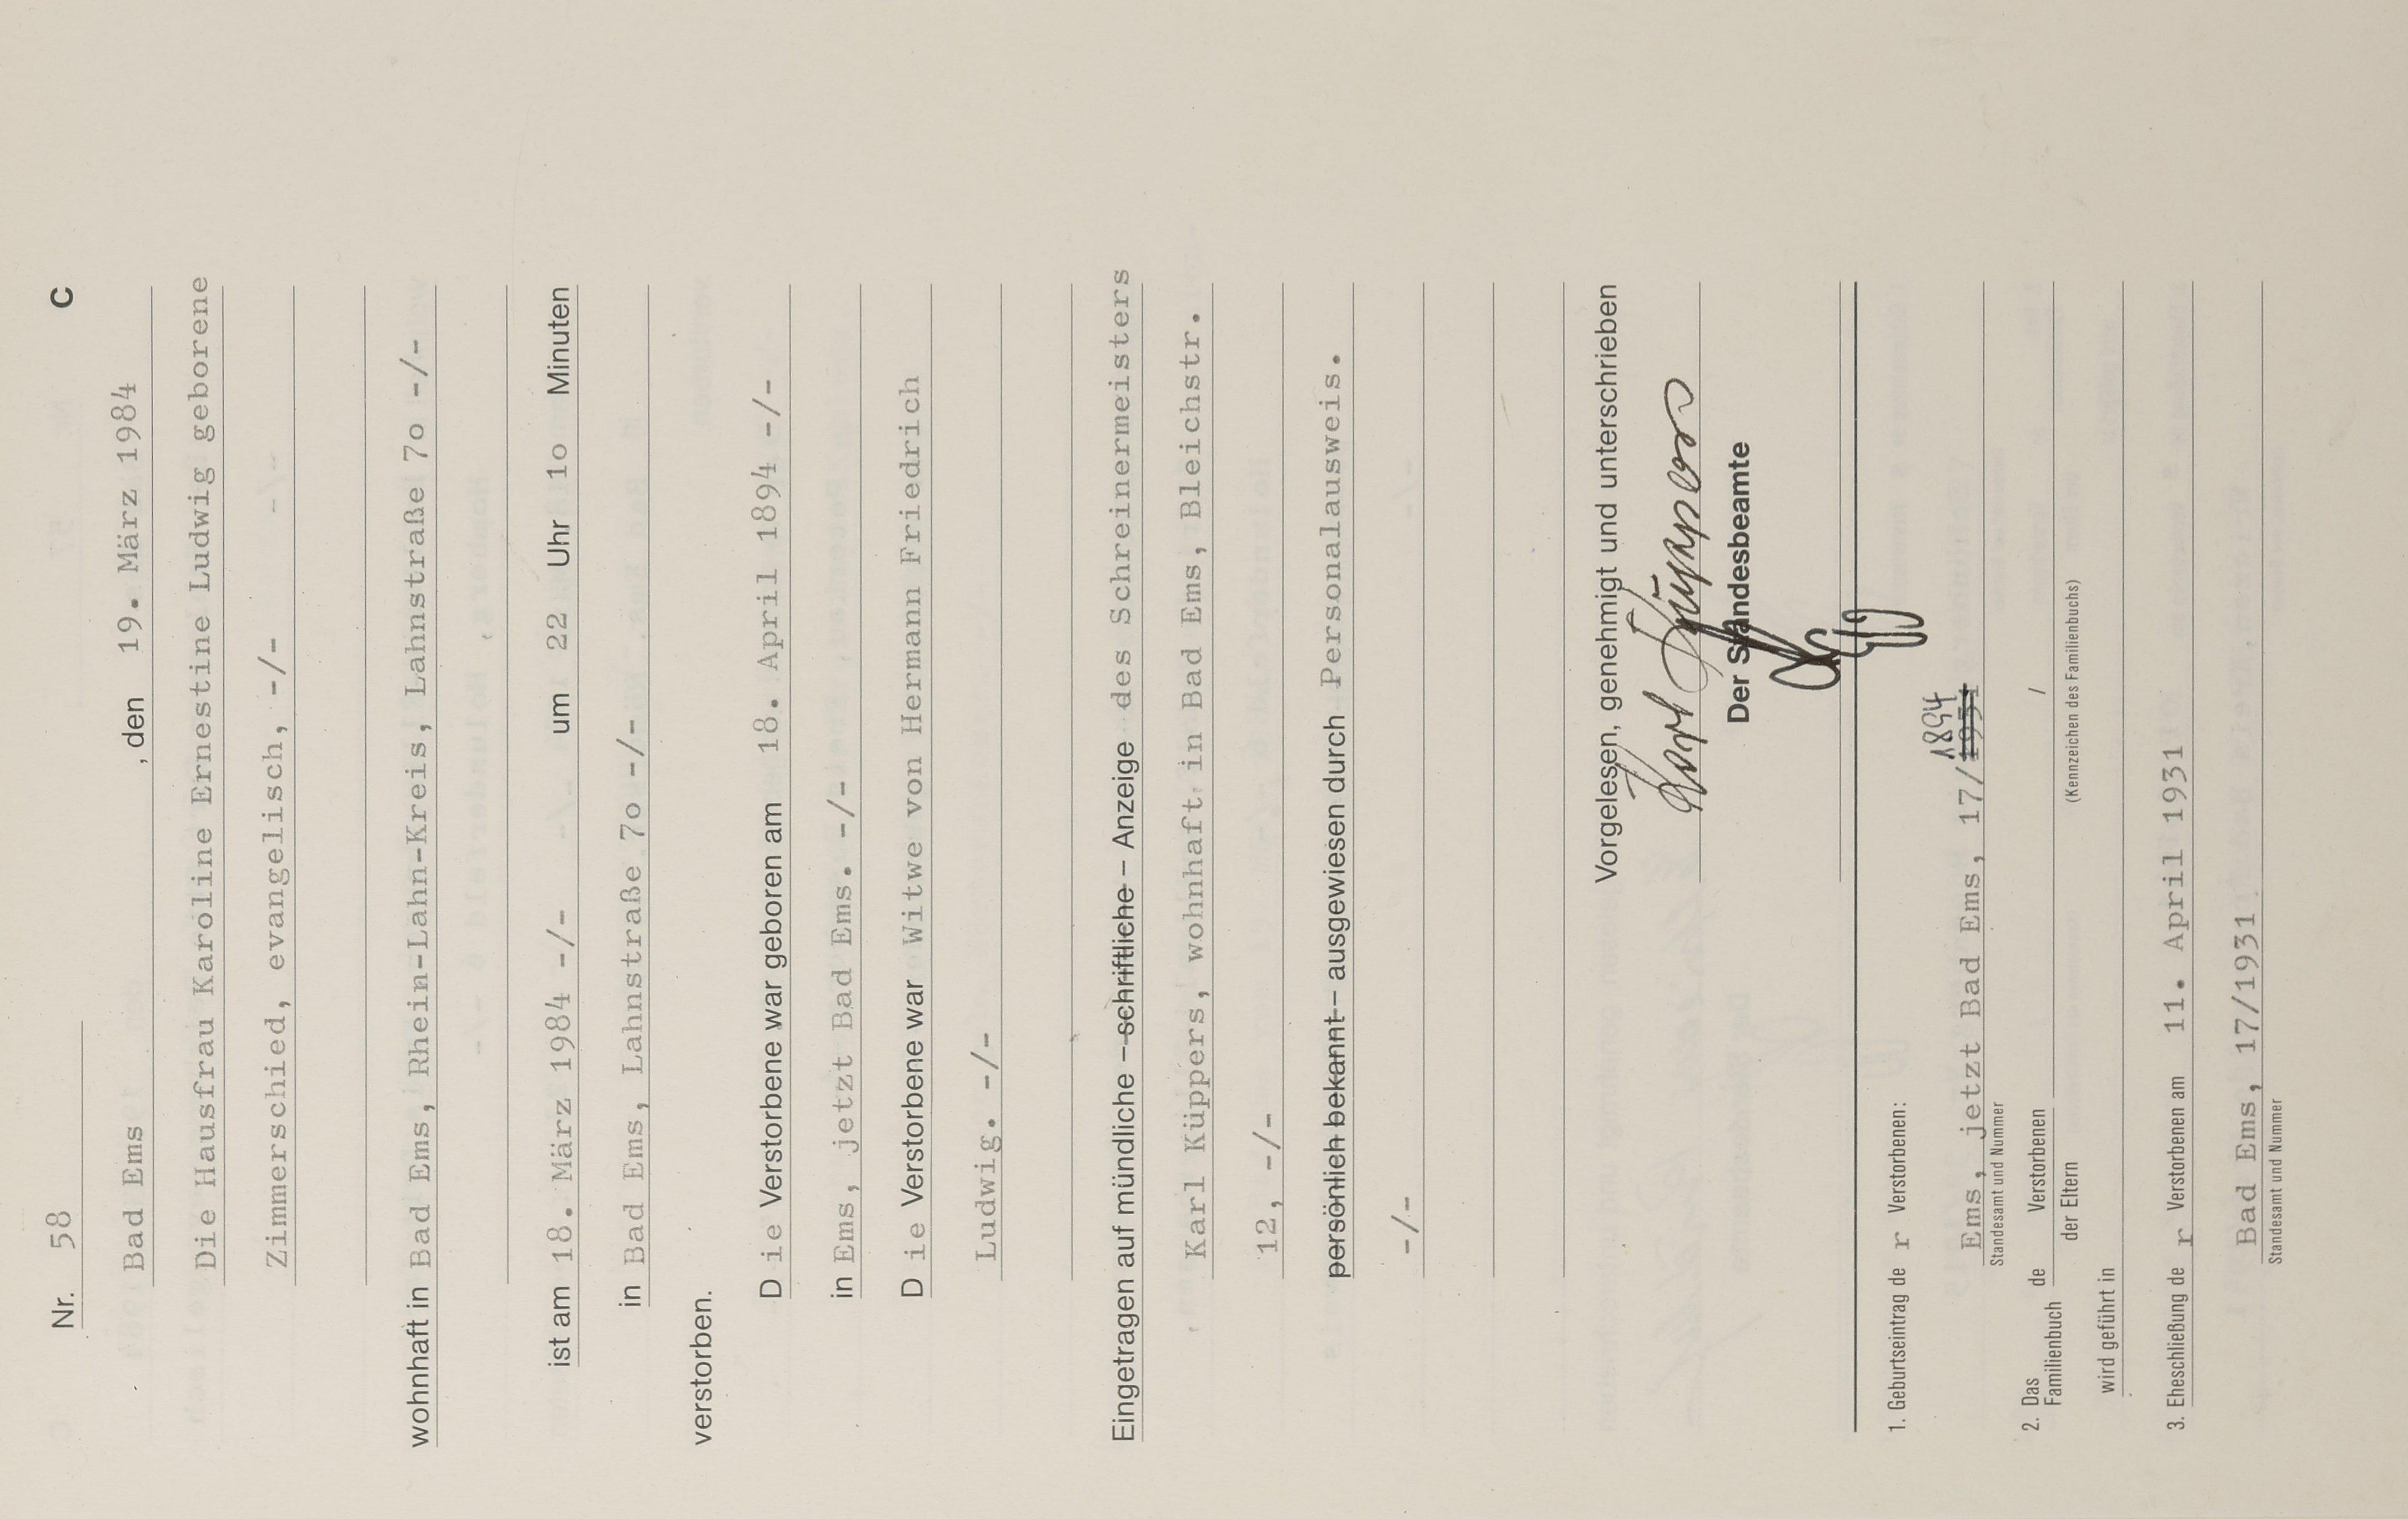 Nr. 58 C
Bad Ems, den 19. März 1984
Die Hausfrau Karoline Ernestine Ludwig geborene
Zimmerschied, evangelisch, -/-
wohnhaft in Bad Ems, Rhein-Lahn-Kreis, Lahnstraße 7o -/-
ist am 18. März 1984 -/- um 22 Uhr 1o Minuten
in Bad Ems, Lahnstraße 7o -/-
verstorben.
Die Verstorbene war geboren am 18. April 1894 -/-
in Ems, jetzt Bad Ems. -/-
Die Verstorbene war Witwe von Hermann Friedrich
Ludwig. -/-
Eingetragen auf mündliche – schriftliche – Anzeige des Schreinermeisters
Karl Küppers, wohnhaft in Bad Ems, Bleichstr.
12, -/-
persönlich bekannt – ausgewiesen durch Personalausweis.
-/-
Vorgelesen, genehmigt und unterschrieben
Karl Küppers
Der Standesbeamte
1. Geburtseintrag der Verstorbenen:
1894
Ems, jetzt Bad Ems, 17/1931
Standesamt und Nummer
2. Das Familienbuch de Verstorbenen / der Eltern
(Kennzeichen des Familienbuchs)
wird geführt in
3. Eheschließung der Verstorbenen am 11. April 1931
Bad Ems, 17/1931
Standesamt und Nummer